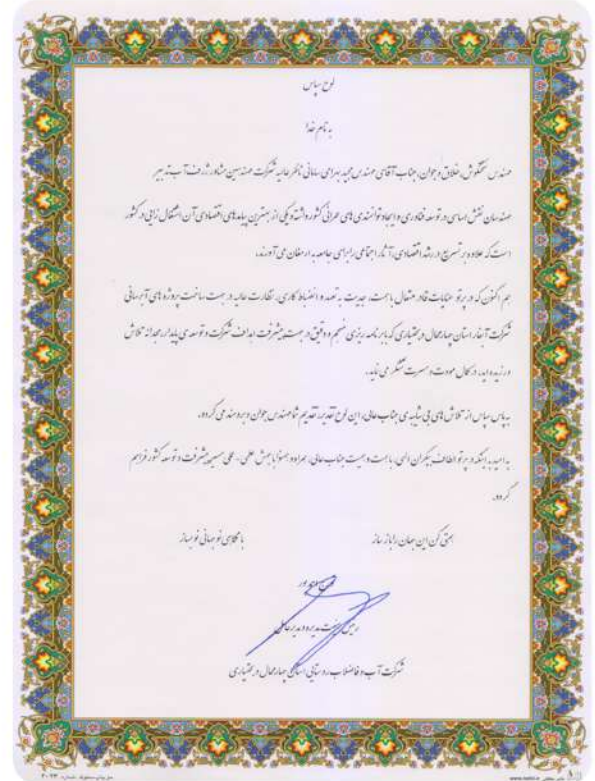 لوح سپاس
به نام خدا
مهندس سختکوش، خلاق و جوان، جناب آقای مهندس مجید بهرامی سامانی ناظر عالیه شرکت مهندسین مشاور ژرف آب تدبیر
مهندسان نقش اساسی در توسعه فناوری و ایجاد توانمندی های عمرانی کشور داشته و یکی از بهترین پیامدهای اقتصادی آن اشتغال زایی در کشور
است که علاوه بر تسریع در رشد اقتصادی، آثار اجتماعی را برای جامعه به ارمغان می آورند،
هم اکنون که در پرتو عنایات قادر متعال با همت، جدیت به تعهد و انضباط کاری، نظارت عالیه در جهت ساخت پروژه های آبرسانی
شرکت آبفار استان چهارمحال و بختیاری که با برنامه ریزی منسجم و دقیق در جهت پیشرفت اهداف شرکت و توسعه ی پایدار، مجدانه تلاش
ورزیده اید، در کمال مودت و مسرت متشکر می نماید.
به پاس سپاس از تلاش های بی شائبه ی جناب عالی، این لوح تقدیر، تقدیم شما مهندس جوان و برومند می گردد.
به امید اینکه در پرتو الطاف بیکران الهی، با همت و حمیت جناب عالی، همراه و همنوا با جنبش علمی، عملی مسیر پیشرفت و توسعه کشور فراهم
گردد.
همتی کن این جهان را باز ساز
با نگاهی نو جهانی نو بساز
رییس هیئت مدیره و مدیرعامل
شرکت آب و فاضلاب روستایی استان چهارمحال و بختیاری